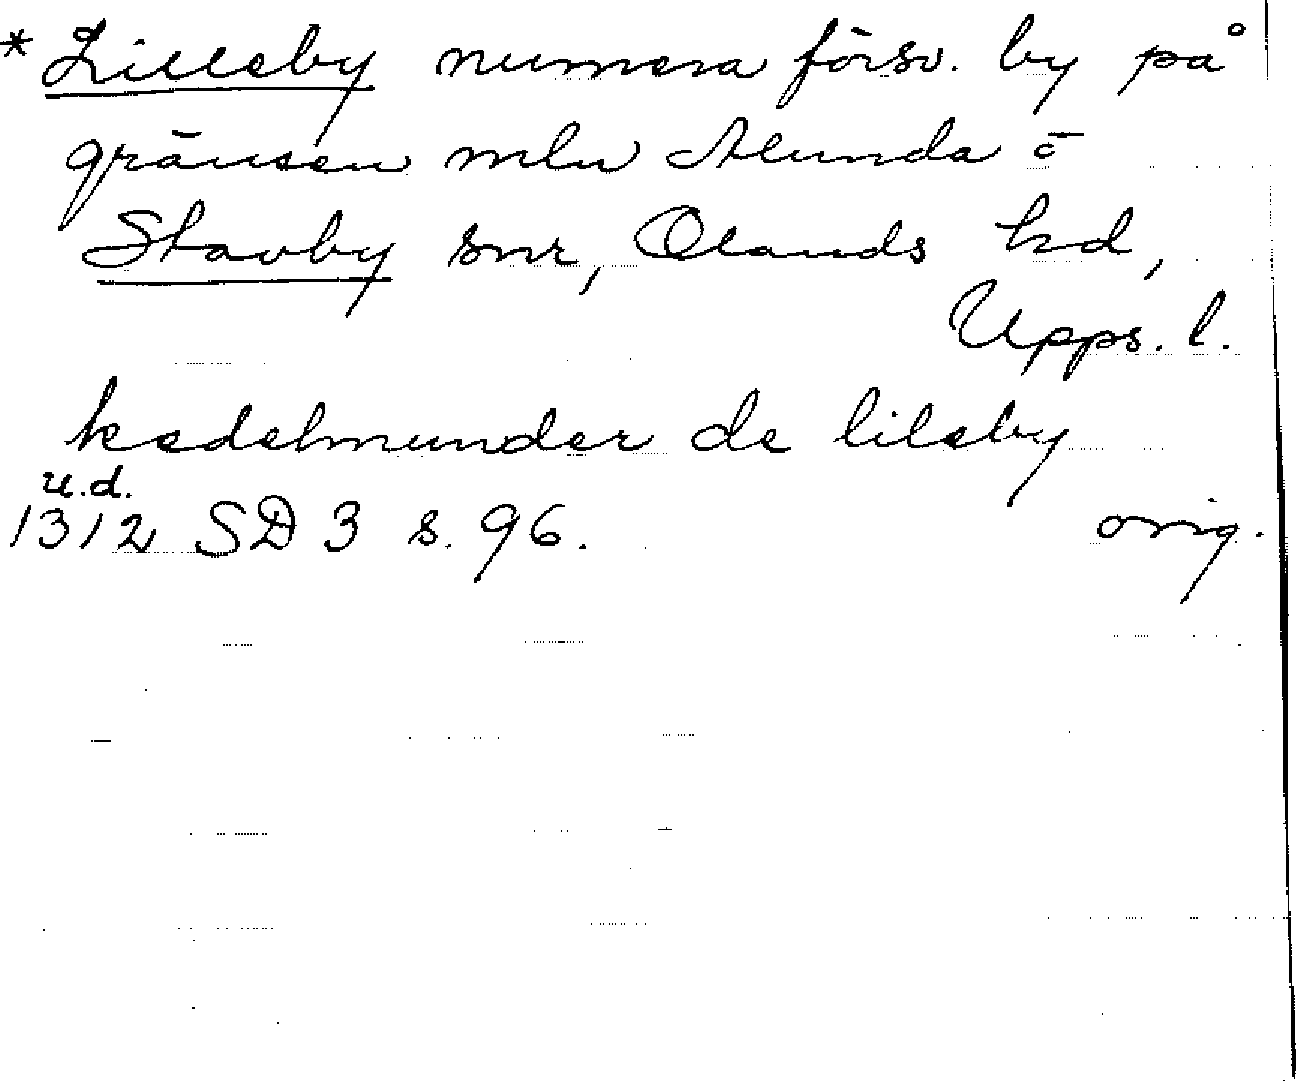 * Lilleby numera försv. by på
gränsen mln Alunda o
Stavby snr, Olands hd,
Upps. l.
ketelmunder de lileby
u.d.
1312 SD 3 s. 96. orig.